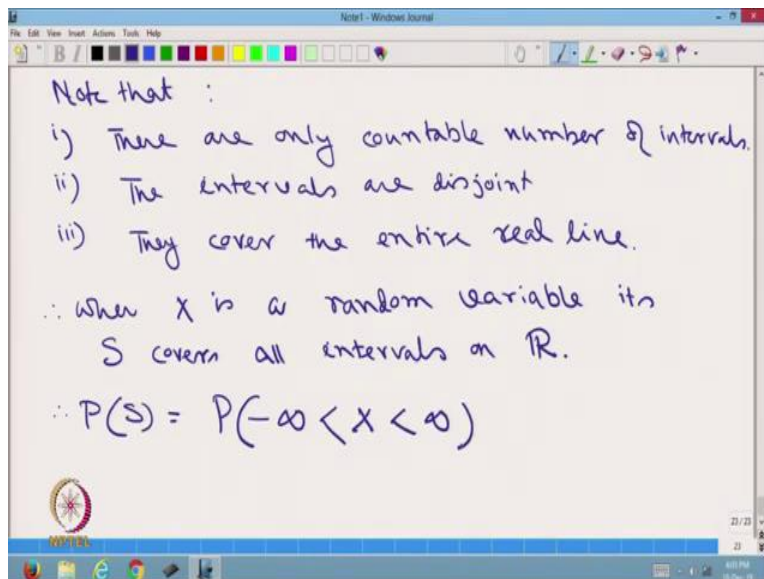 Note1 - Windows Journal
File Edit View Insert Actions Tools Help
Note that :
i) There are only countable number of intervals.
ii) The intervals are disjoint
iii) They cover the entire real line.
∴ when X is a random variable its
S covers all intervals on ℝ.
∴ P(S) = P(-∞ < X < ∞)
NPTEL
23 / 23
23